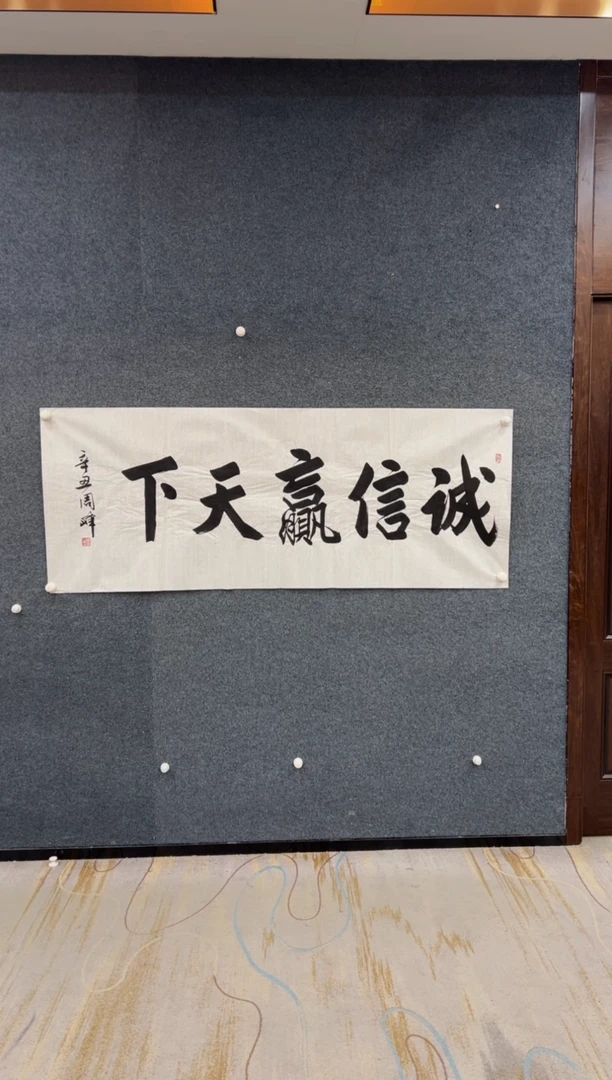 诚信赢天下
辛丑周峰